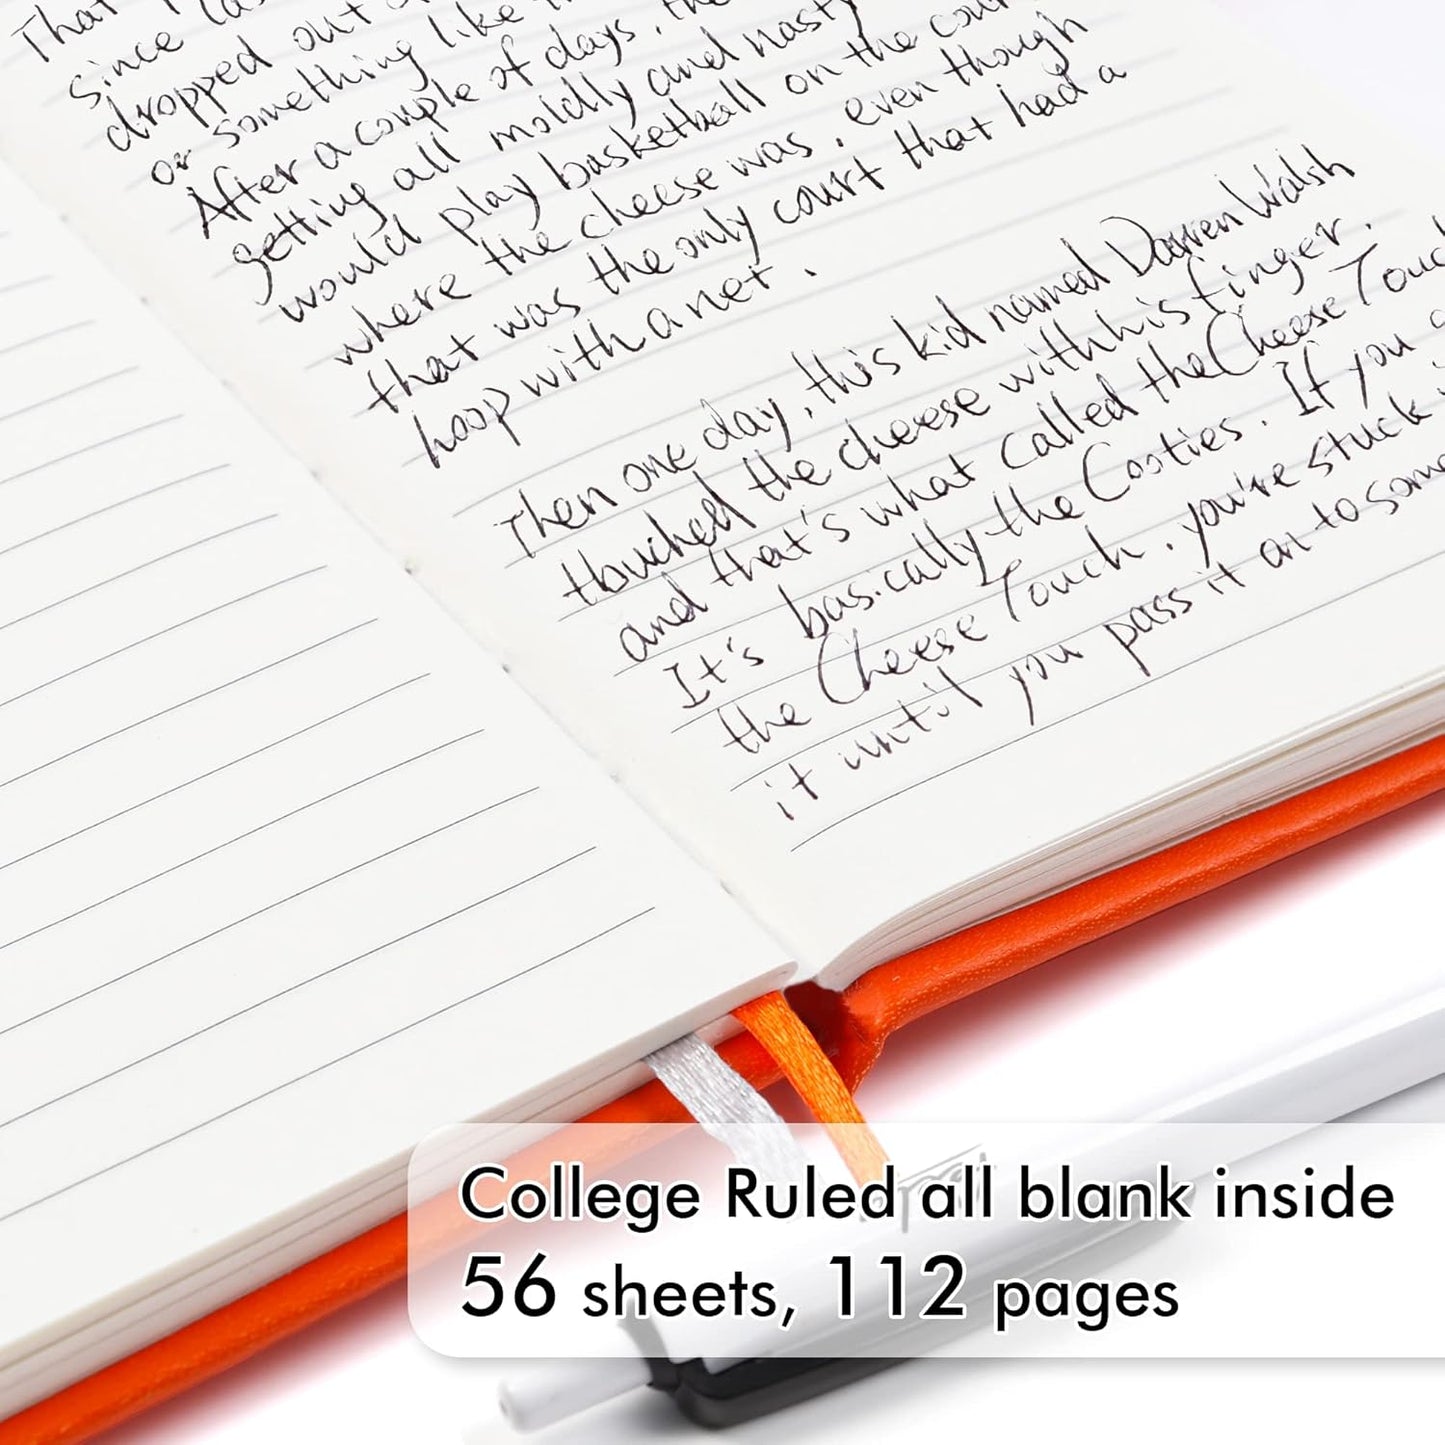 That
since
dropped out
or something like
After a couple of days, the
getting all moldly and nasty
would play basketball on the court
where the cheese was, even though
that was the only court that had a
hoop with a net.
Then one day, this kid named Darren Walsh
touched the cheese with his finger.
and that's what called the Cheese Touch
It's basically the Cooties. If you
the Cheese Touch, you're stuck
it until you pass it on to some
College Ruled all blank inside
56 sheets, 112 pages